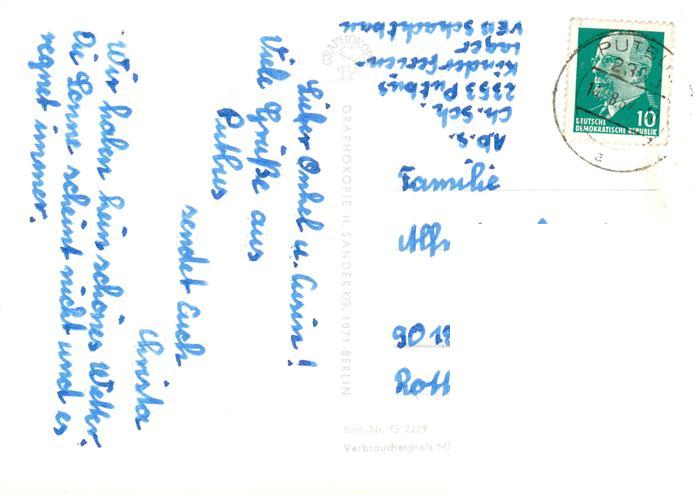 Lieber Onkel u. Cusin!
Viele Grüße aus
Putbus
sendet Euch
Christa
Wir haben kein schönes Wetter.
Die Sonne scheint nicht und es
regnet immer.
GRAPHOKOPIE
GRAPHOKOPIE H. SANDER KG. 1971 BERLIN
Abs.
Ch. Sch.
2353 Putbus
Kinderferien-
lager
VEB Schachtbau
PUTB
DEUTSCHE
DEMOKRATISCHE REPUBLIK
10
a
Familie
Alfr
90 1
Rott
Best.-Nr. G 2209
Verbraucherpreis M